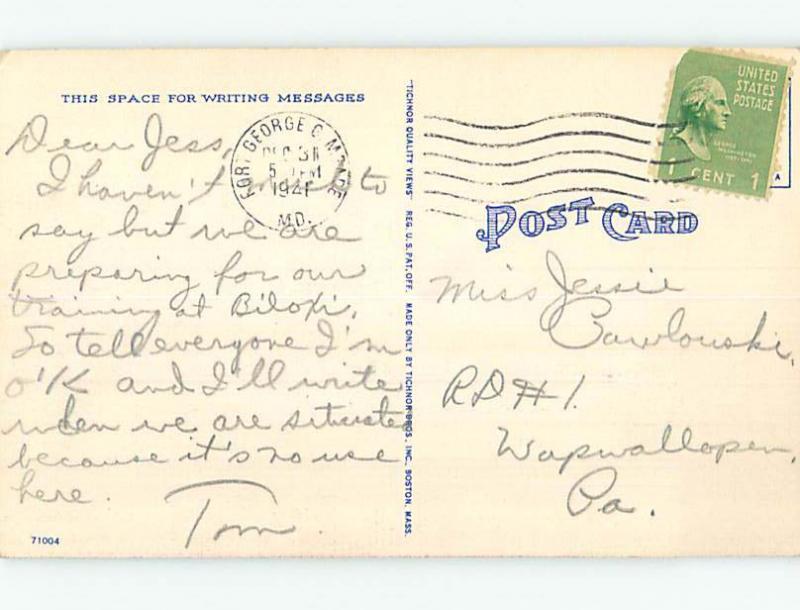 THIS SPACE FOR WRITING MESSAGES
Dear Jess,
I haven't much to
say but we are
preparing for our
training at Biloxi.
So tell everyone I'm
O'K and I'll write
when we are situated
because it's no use
here.
Tom
71004
"TICHNOR QUALITY VIEWS" REG. U.S. PAT. OFF. MADE ONLY BY TICHNOR BROS. INC., BOSTON, MASS.
FORT GEORGE G MEADE
DEC 31
5 PM
1941
MD.
UNITED
STATES
POSTAGE
GEORGE
WASHINGTON
1 CENT 1
A
POST CARD
Miss Jessie
Pawlowski,
RD #1.
Wapwallopen,
Pa.